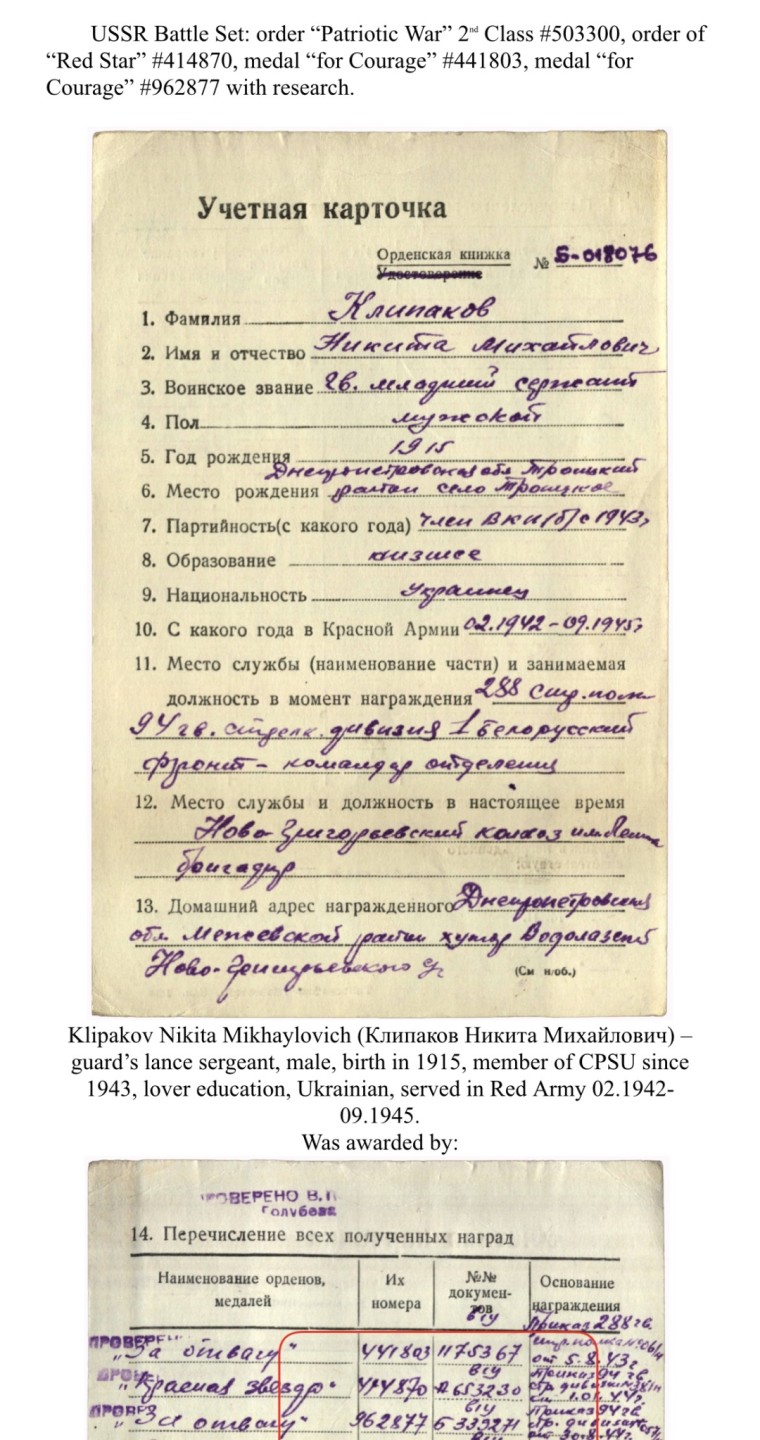 USSR Battle Set: order “Patriotic War” 2nd Class #503300, order of
“Red Star” #414870, medal “for Courage” #441803, medal “for
Courage” #962877 with research.
Учетная карточка
Орденская книжка № Б-018076
Удостоверение
1. Фамилия Клипаков
2. Имя и отчество Никита Михайлович
3. Воинское звание гв. младший сержант
4. Пол мужской
5. Год рождения 1915
Днепропетровская обл Троицкий
6. Место рождения район село Троицкое
7. Партийность(с какого года) член ВКП(б) с 1943г
8. Образование низшее
9. Национальность Украинец
10. С какого года в Красной Армии 02.1942-09.1945г
11. Место службы (наименование части) и занимаемая
должность в момент награждения 288 стр. полк
94 гв. стрелк. дивизия 1 Белорусский
фронт - командир отделения
12. Место службы и должность в настоящее время
Ново-Григорьевский колхоз им Ленина
бригадир
13. Домашний адрес награжденного Днепропетровская
обл. Межевской район хутор Водолазский
Ново-Григорьевского
(См н/об.)
Klipakov Nikita Mikhaylovich (Клипаков Никита Михайлович) –
guard’s lance sergeant, male, birth in 1915, member of CPSU since
1943, lover education, Ukrainian, served in Red Army 02.1942-
09.1945.
Was awarded by:
ПРОВЕРЕНО В.
Голубева
14. Перечисление всех полученных наград
Наименование орденов, Их №№ Основание
медалей номера докумен- награждения
тов
Приказ 288 гв.
„За отвагу“ 441803 1175367
от 5.8.43г
„Красная звезда“ 414870 А653230
„За отвагу“ 962877 Б339271